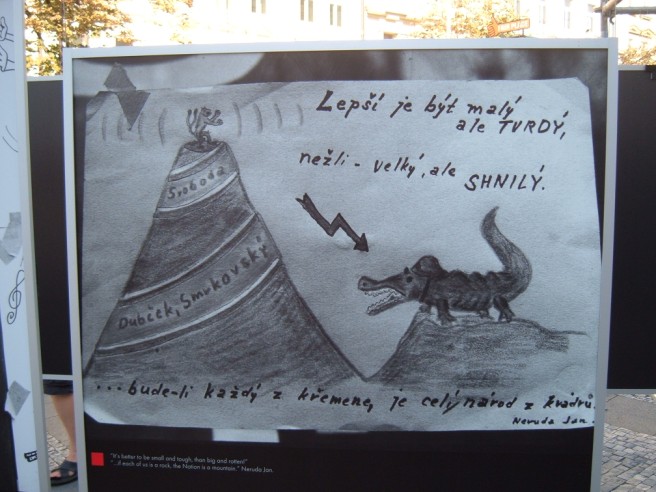 Lepší je být malý
ale TVRDÝ,
nežli - velký, ale
SHNILÝ.
Svoboda
Dubček, Smrkovský
...bude-li každý z křemene, je celý národ z kvádrů.
Neruda Jan.
"It's better to be small and tough, than big and rotten!"
"...if each of us is a rock, the Nation is a mountain." Neruda Jan.